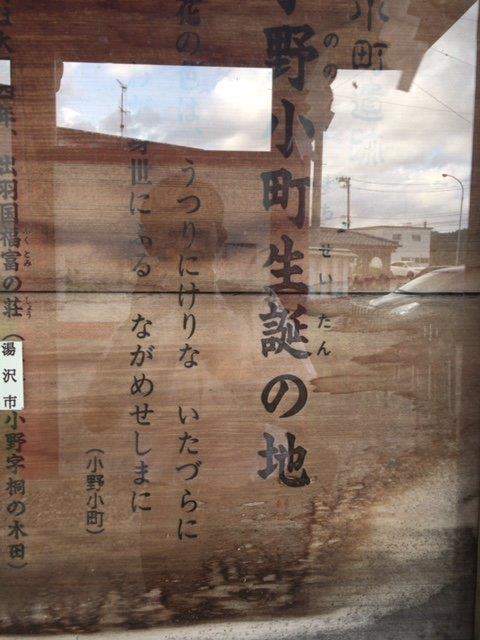 小町
野小町生誕の地
のの
せいたん
花の色は、うつりにけりな いたづらに
身世にふる ながめせしまに
(小野小町)
四年、出羽国福富の荘(
ふくとみ
しょう
湯沢市
小野字桐の木田)